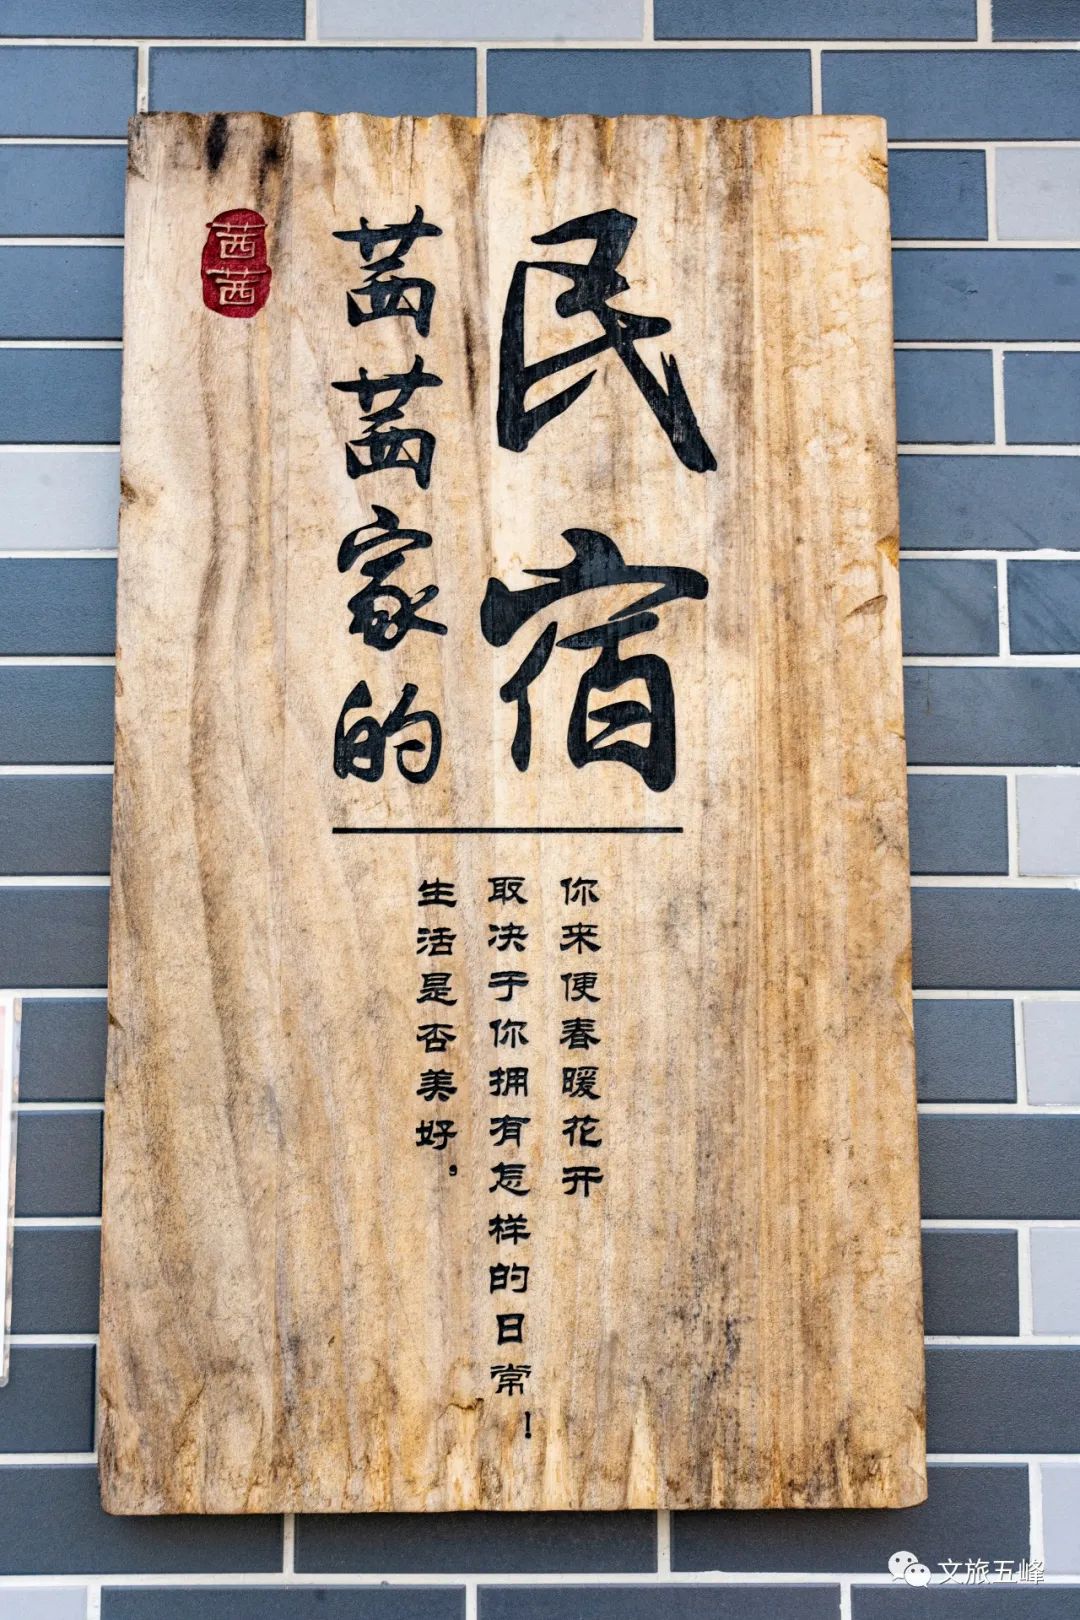 茜茜
茜茜家的
民宿
生活是否美好，
取决于你拥有怎样的日常！
你来便春暖花开
文旅五峰